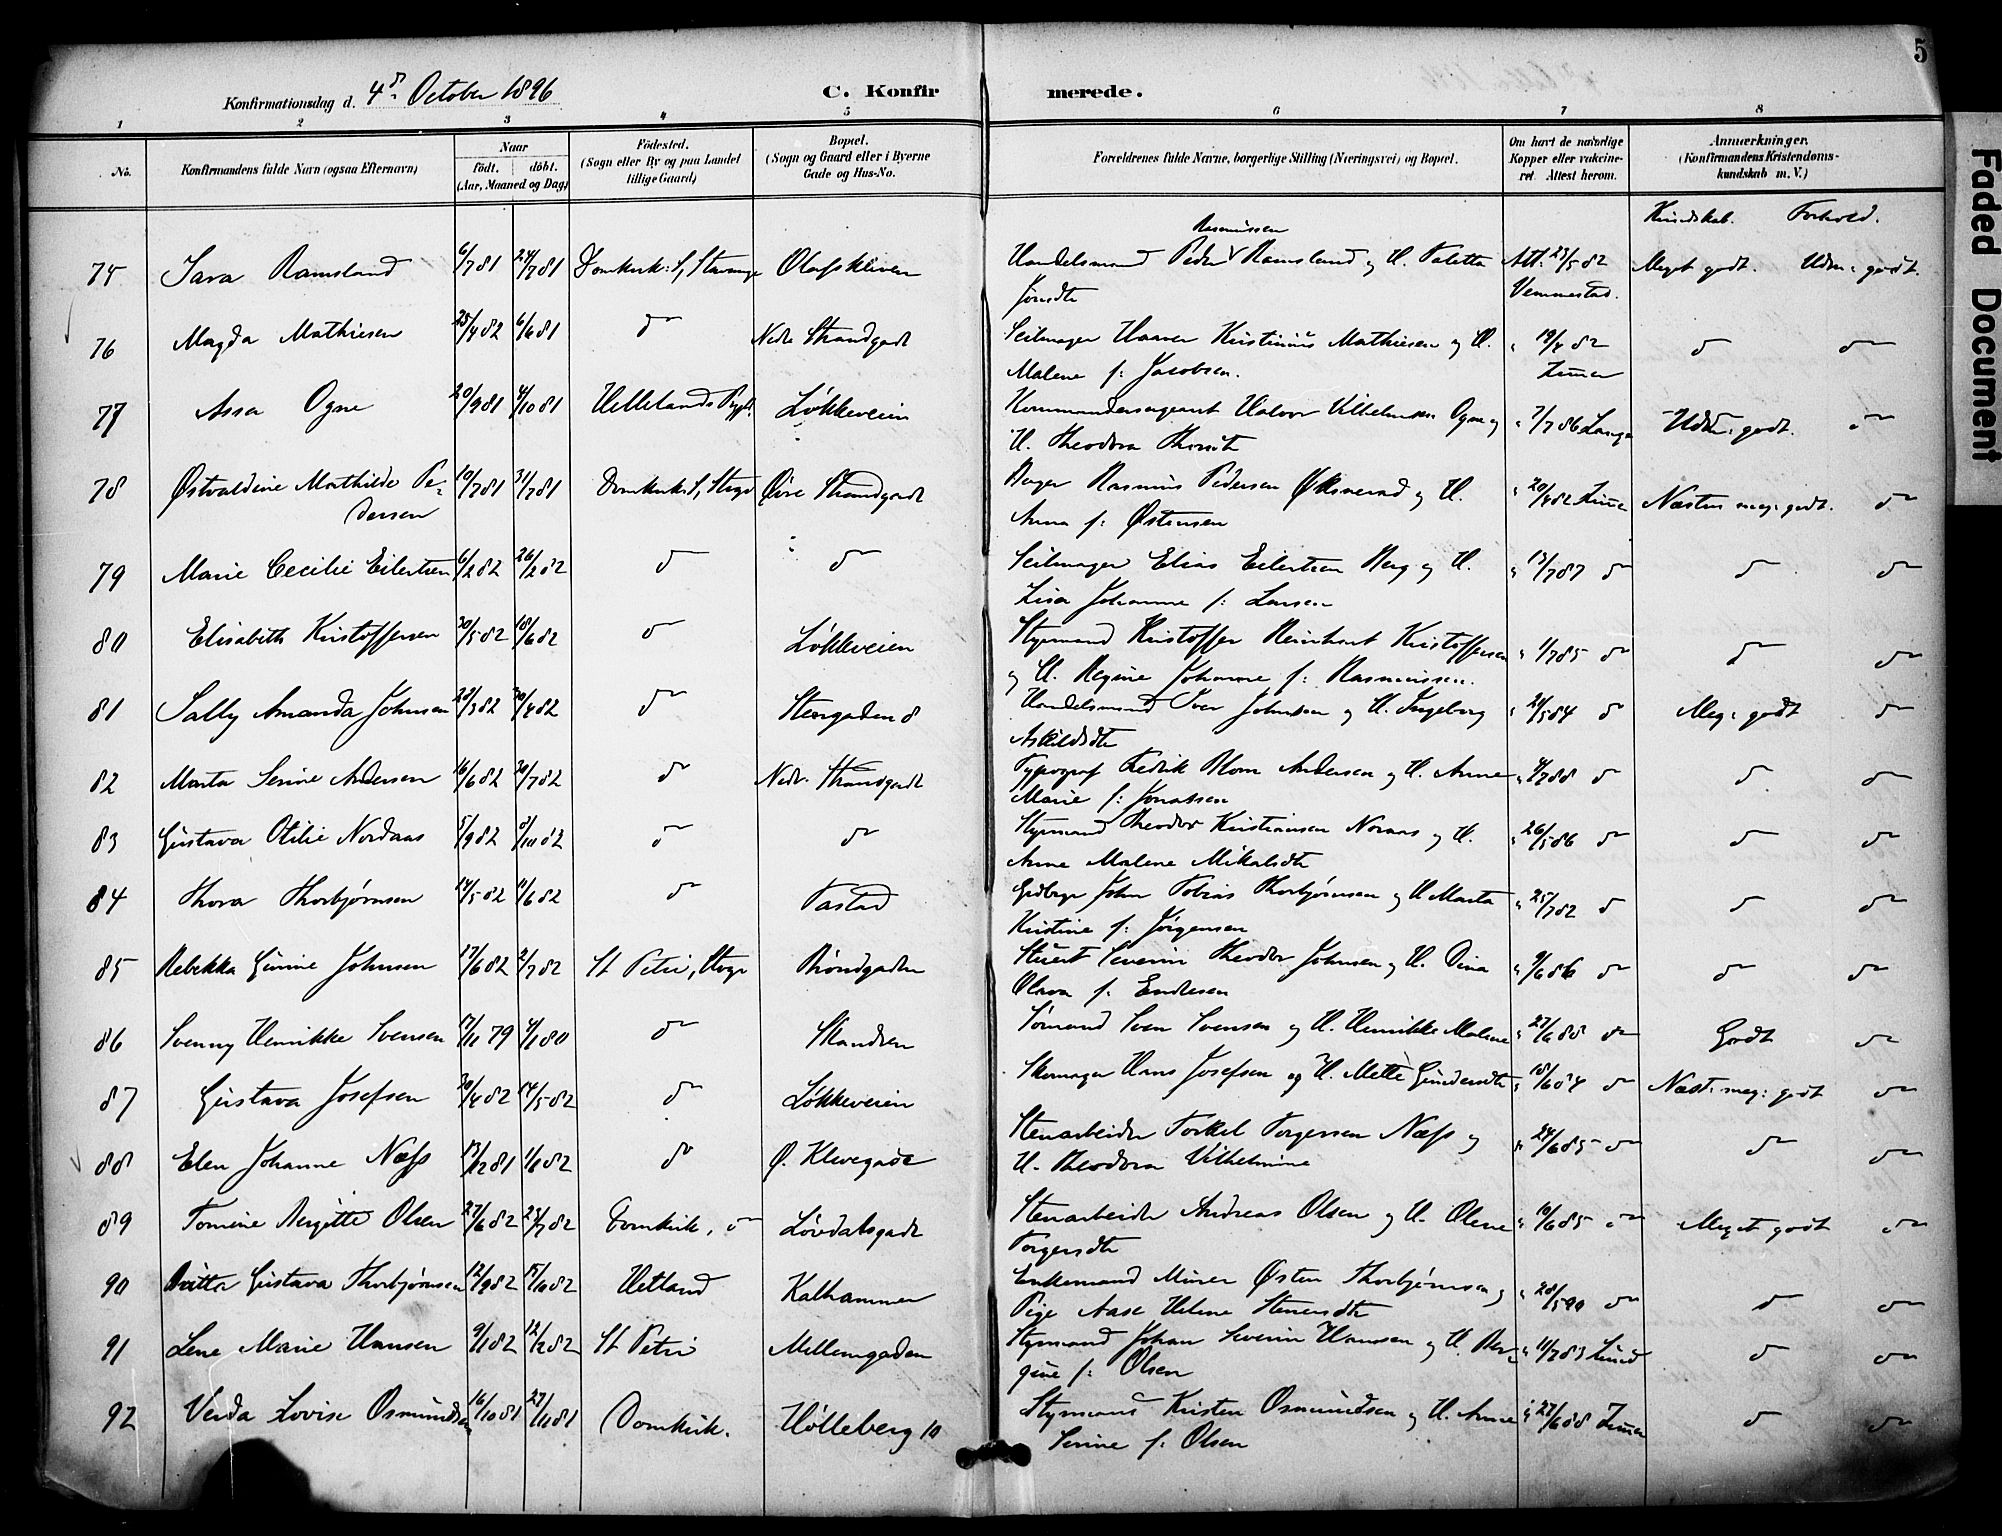 5
Konfirmationsdag d. 4de October 1896
C. Konfirmerede.
1 2 3 4 5 6 7 8
No.
Konfirmandens fulde Navn (ogsaa Efternavn)
Naar
födt. döbt.
(Aar, Maaned og Dag)
Födested.
(Sogn eller By og paa Landet
tillige Gaard)
Bopæl.
(Sogn og Gaard eller i Byerne
Gade og Hus-No.
Forældrenes fulde Navne, borgerlige Stilling (Næringsvei) og Bopæl.
Om havt de naturlige
Kopper eller vakcine-
ret. Attest herom.
Anmærkninger.
(Konfirmandens Kristendoms-
kundskab m. V.)
Kundskab. Forhold.
75 Sara Ramsland 6/7 81 24/7 81 Domkirk: S, Stavange Olafskleven Handelsmand Peder Rasmussen Ramsland og H. Att. 23/5 82 Meget godt. Udm: godt.
Vemmestad.
76 Magda Mathiesen 25/4 82 6/6 81 do Nedr Strandgade Seilmager Haaver Kristinius Mathiesen og H. " 19/4 82 do do
Malene f: Jacobsen.
77 Assa Ogne 20/9 81 4/10 81 Hellelands Løkkeveien Kommandersergeant Halvor Vilhelmsen Ogne og " 7/7 86 Lange Udm: godt. do
H. Theodora
78 Østvaldine Mathilde Pe- 10/7 81 31/7 81 Domkirk: S, Stvgr Øvre Strandgade Rasmus Pedersen og H. " 20/4 82 Næsten meg: godt. do
dersen
Anna f: Østensen
79 Marie Cecilie Eilertsen 6/2 82 26/2 82 do do Seilmager Elias Eilertsen Berg og H. " 13/7 87 do do do
Lisa Johanne f: Larsen
80 Elisabeth Kristoffersen 30/5 82 18/6 82 do Løkkeveien Styrmand Kristoffer Reinhart Kristoffersen " 1/7 85 do do do
og H. Regine Johanne f: Rasmussen.
81 Sally Amanda Johnsen 28/3 82 30/4 82 do Stengaden 8 Handelsmand Iver Johnsen og H. Ingeborg " 21/5 84 do Meg: godt do
Askildsdtr
82 Marta Serine Andersen 16/6 82 30/7 82 do Nedr. Strandgade Typograf Fredrik Blom Andersen og H. Anne " 4/7 88 do do do
Marie f: Jonassen
83 Gustava Otilie Nordaas 5/9 82 8/10 82 do do Styrmand Theodor Kristiansen Noraas og H. " 26/5 86 do do do
Anne Malene Mikalsdtr
84 Thora Thorbjørnsen 14/5 82 11/6 82 do Tastad John Tobias Thorbjørnsen og H. Marta " 25/7 82 do do do
Kristine f: Jørgensen
85 Rebekka Gurine Johnsen 17/6 82 2/7 82 St Petri, Stvgr Brøndgaden Stuert Severin Theodor Johnsen og H. Dina " 9/6 86 do do do
Olava f. Endresen
86 Svenny Henrikke Svensen 17/11 79 4/1 80 do Skandsen Sømand Sven Svensen og H. Henrikke Malene " 27/6 88 do Godt do
87 Gustava Josefsen 30/4 82 14/5 82 do Løkkeveien Skomager Hans Josefsen og H. Mette Gundersdtr " 18/6 84 do Næst: meg: godt do
88 Elen Johanne Næss 13/12 81 1/1 82 do Ø. Klevegade Stenarbeider Torkel Torgersen Næss og " 24/6 85 do do do
H. Theodora Vilhelmine
89 Tomine Bergitte Olsen 27/6 82 23/7 82 Domkirk, do Løvdalsgade Stenarbeider Andreas Olsen og H. Olene " 10/6 85 do Meget godt do
Torgersdtr
90 Britta Gustava Thorbjørnsen 12/9 82 15/10 82 Hetland Kalhammer Enkemand Murer Østen Thorbjørnsen og " 28/5 90 do do do
Pige Aase Helene
91 Lene Marie Hansen 9/1 82 12/2 82 St Petri Mellemgaden Styrmand Johan Severin Hansen og H. Ber- " 11/7 83 Lund do do
gine f: Olsen
92 Verda Lovise Osmundsen 16/10 81 27/11 81 Domkirk. Hølleberg 10 Styrmand Kristen Osmundsen og H. Anne " 27/6 88 do do
Serine f: Olsen
Faded Document